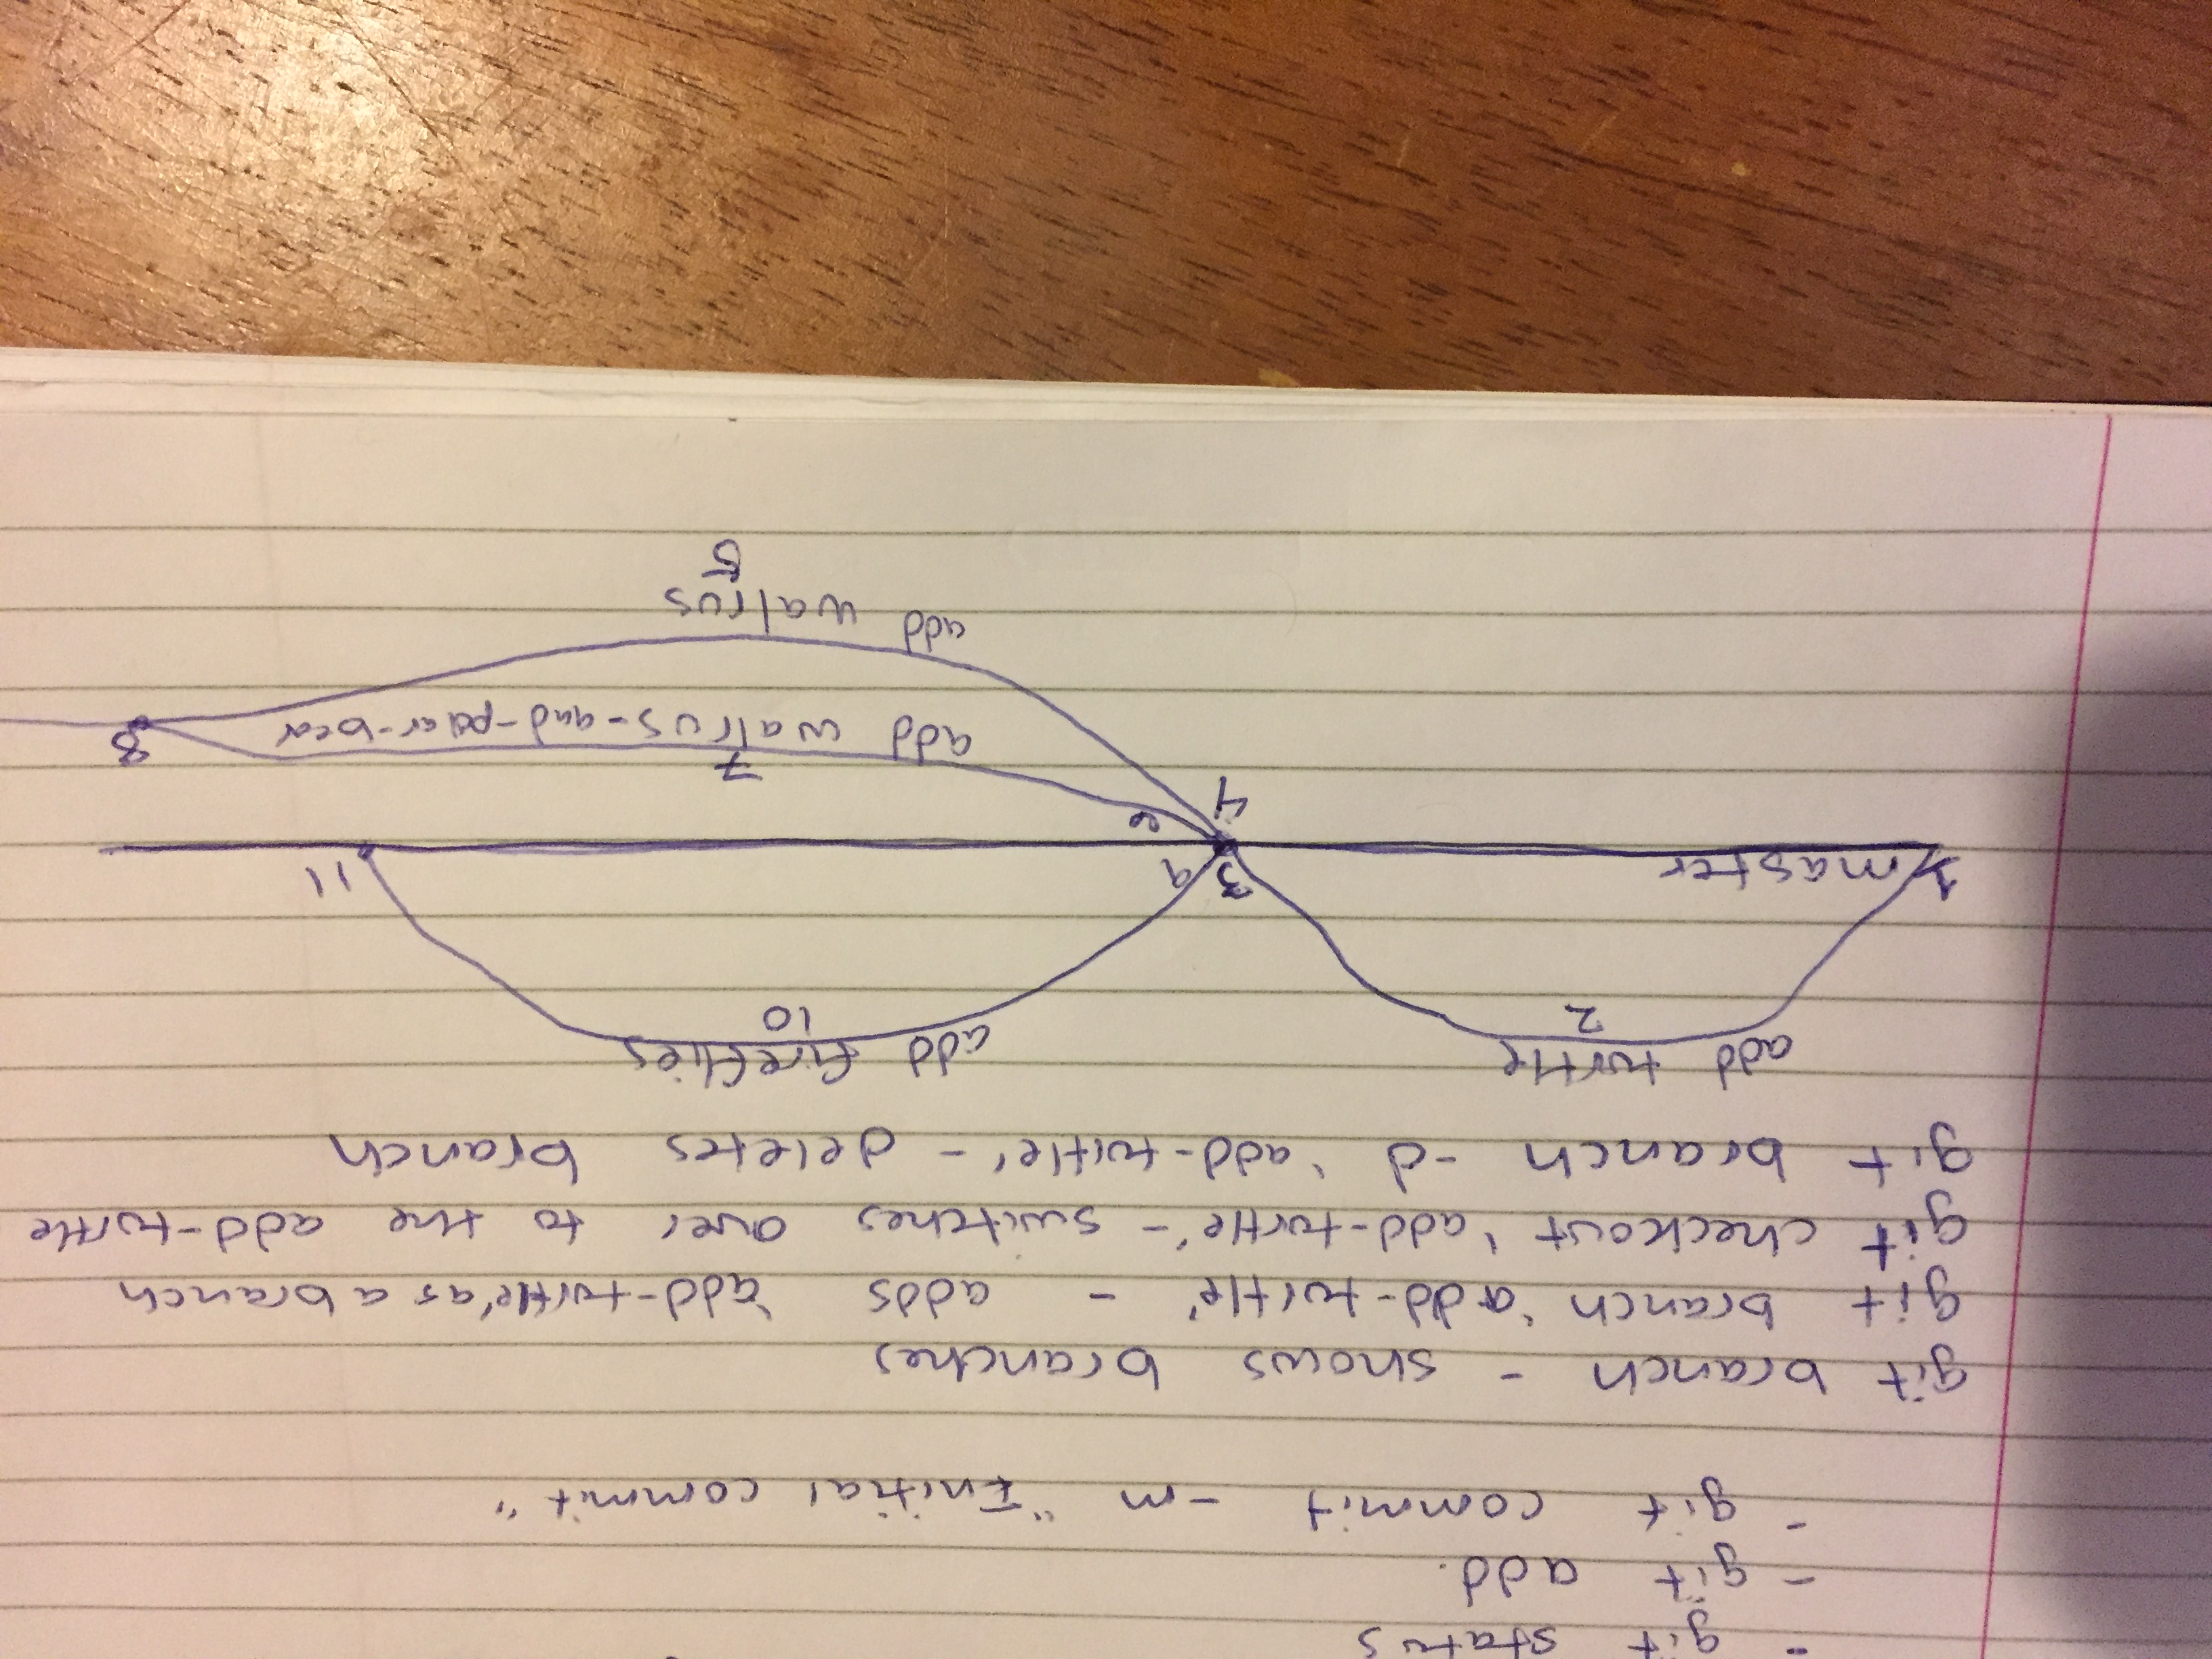 - git status
- git add.
- git commit -m "Initial commit"
git branch - shows branches
git branch 'add-turtle' - adds 'add-turtle' as a branch
git checkout 'add-turtle' - switches over to the add-turtle
git branch -d 'add-turtle' - deletes branch
add turtle
2
add fireflies
10
1
master
3
9
11
4
6
7
add walrus-and-polar-bear
8
add walrus
5